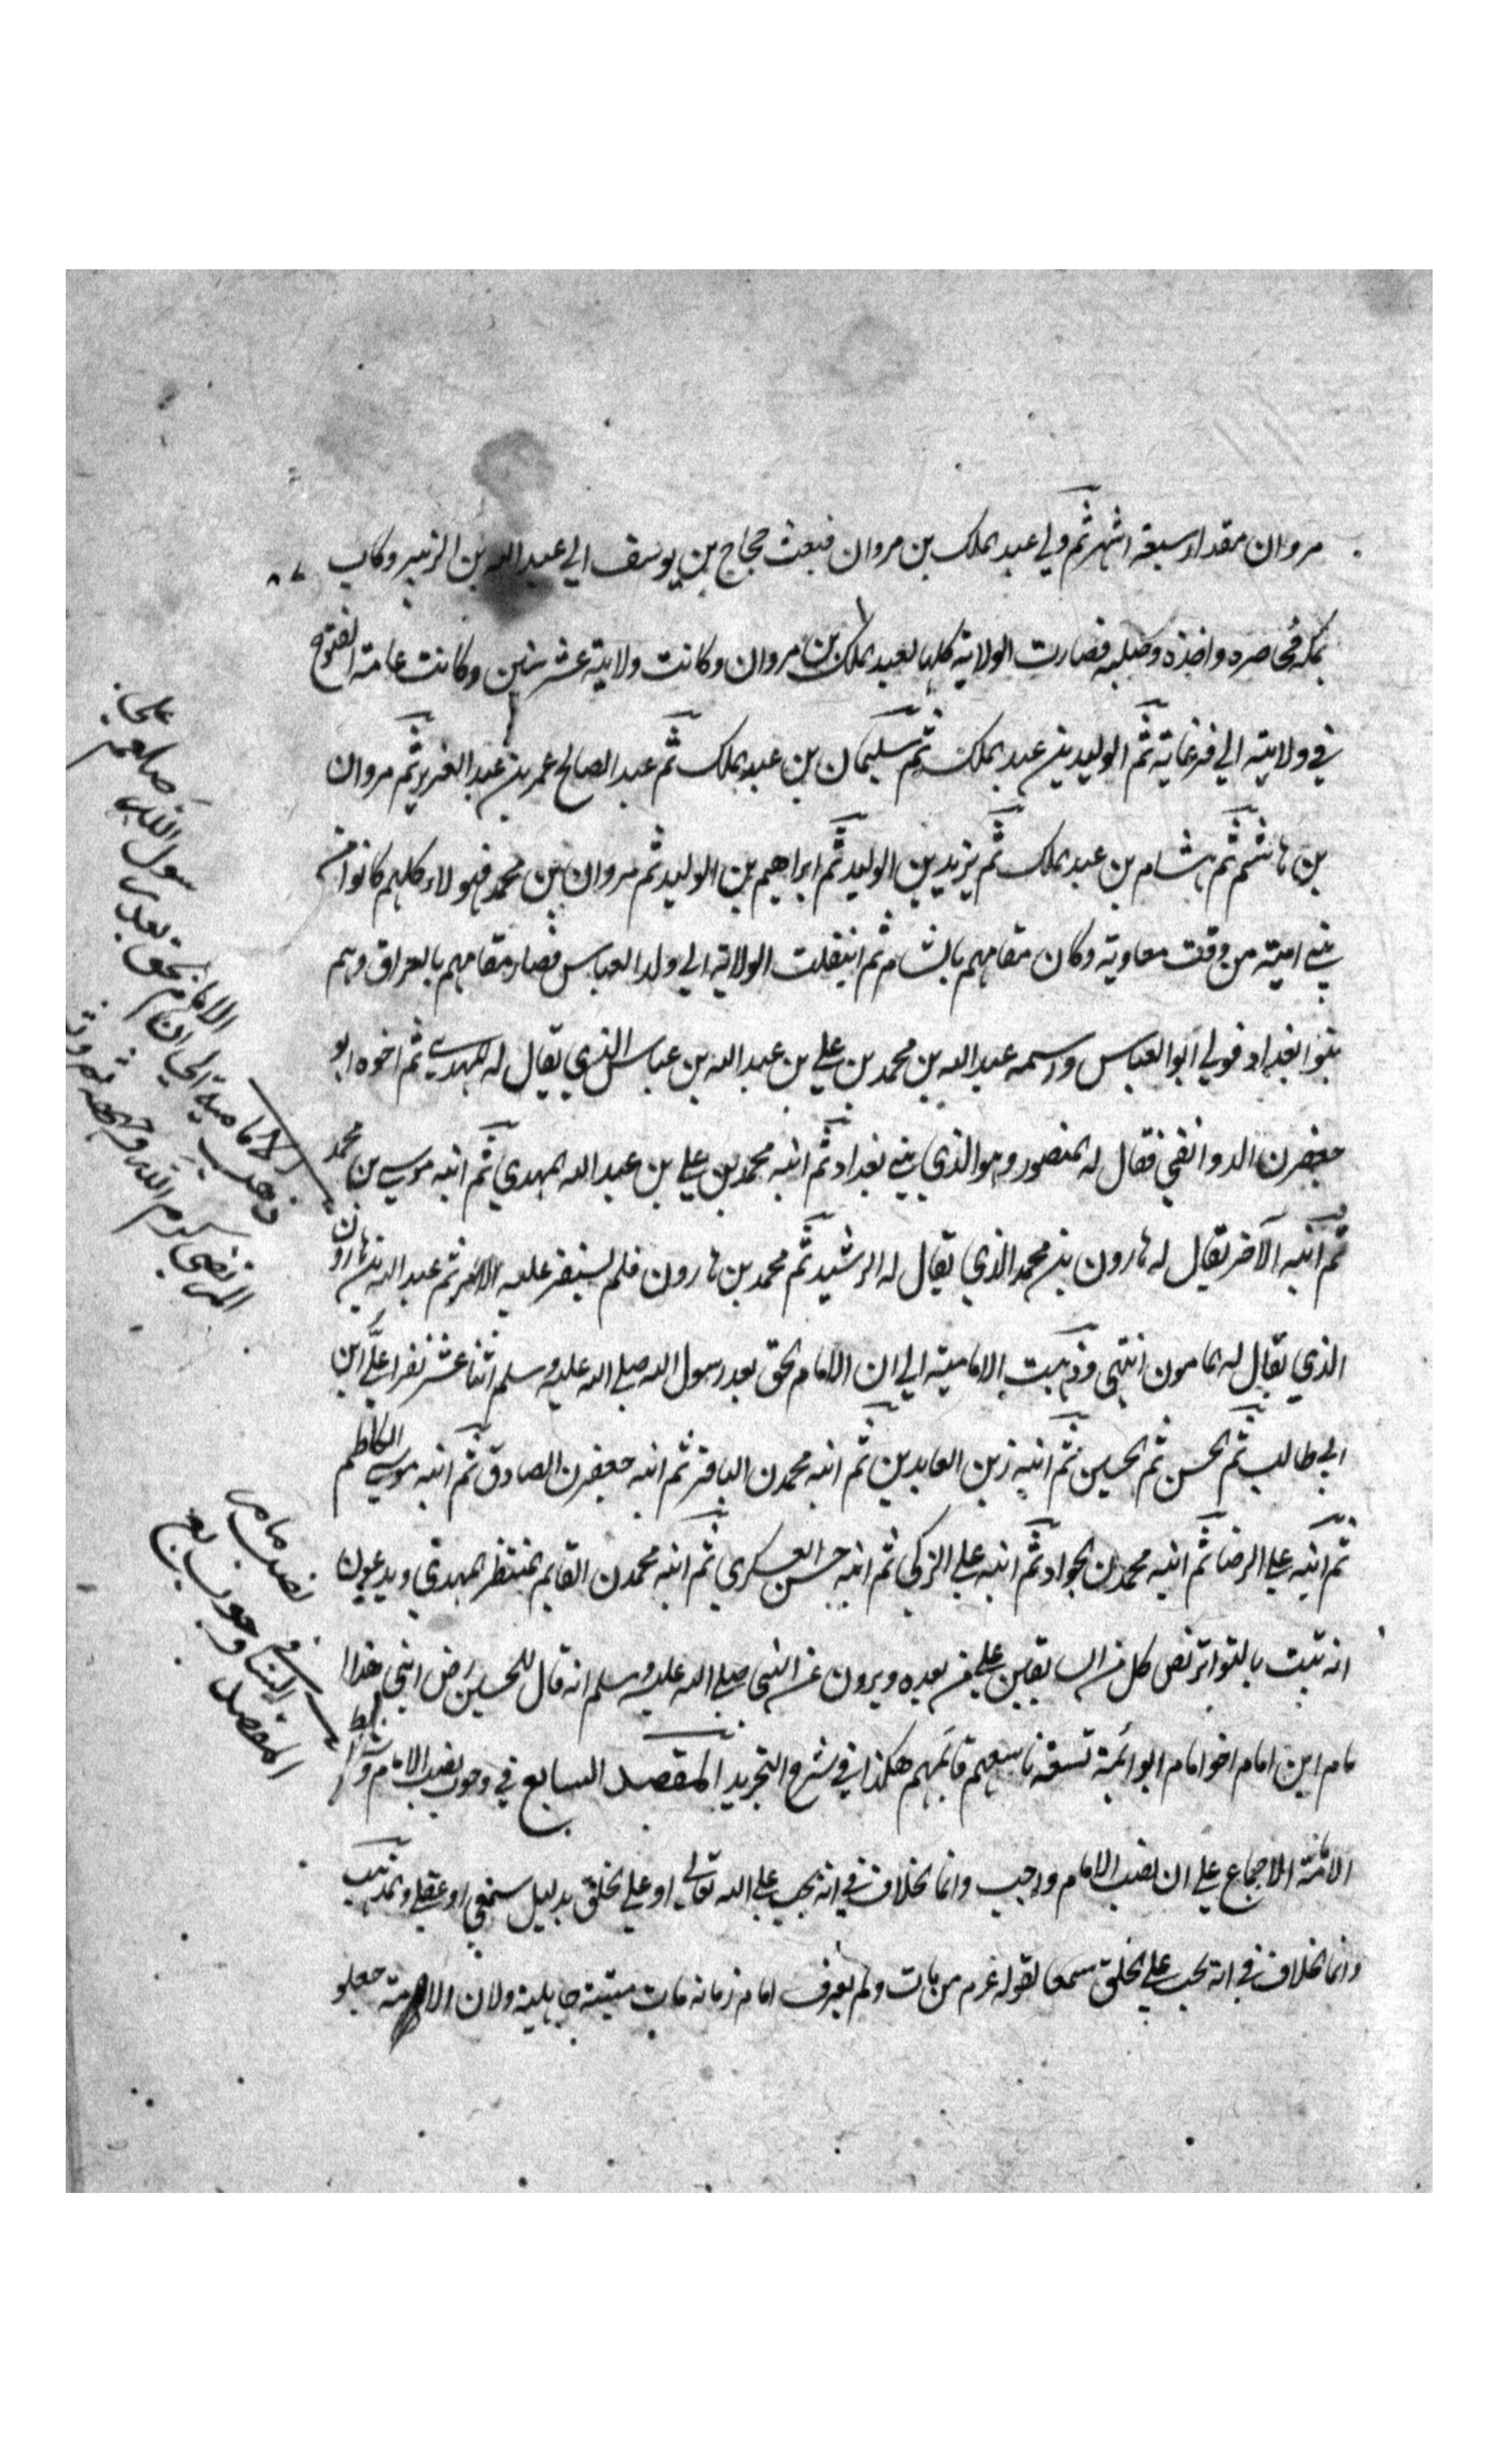 مروان مقدار سبعة اشهر ثم ولي عبد الملك بن مروان فبعث حجاج بن يوسف الي عبد الله بن الزبير وكان
بمكة فحاصره واخذه وصلبه فصارت الولاية كلها لعبد الملك بن مروان وكانت ولايته عشر سنين وكانت عامة الفتوح
في ولايته الي فرغانة ثم الوليد بن عبد الملك ثم سليمان بن عبد الملك ثم عبد الصالح عمر بن عبد العزيز ثم مروان
بن هاشم ثم هشام بن عبد الملك ثم يزيد بن الوليد ثم ابراهيم بن الوليد ثم مروان بن محمد فهولاء كلهم كانوا من
بني امية من وقت معاوية وكان مقامهم بالشام ثم انتقلت الولاية الي ولد العباس فصار مقامهم بالعراق وهم
بنو البغداد فولي ابو العباس واسمه عبد الله بن محمد بن علي بن عبد الله بن عباس الذي يقال له المهدي ثم اخوه ابو
جعفرن الدوانقي فقال له المنصور وهو الذي بني بغداد ثم ابنه محمد بن علي بن عبد الله المهدي ثم ابنه موسي بن محمد
ثم ابنه الآخر يقال له هارون بن محمد الذي يقال له الرشيد ثم محمد بن هارون فلم يستقر عليه الامر ثم عبد الله بن هارون
الذي يقال له المامون انتهي وذهبت الامامية الي ان الامام الحق بعد رسول الله صلي الله عليه وسلم اثنا عشر نفرا علي ابن
ابي طالب ثم الحسن ثم الحسين ثم ابنه زين العابدين ثم ابنه محمدن الباقر ثم ابنه جعفرن الصادق ثم ابنه موسي الكاظم
ثم ابنه علي الرضا ثم ابنه محمدن الجواد ثم ابنه علي الزكي ثم ابنه حسن العسكري ثم ابنه محمدن القايم المنتظر المهدي ويدعون
انه ثبت بالتواتر نص كل من السابقين علي من بعده ويرون عن النبي صلي الله عليه وسلم انه قال للحسين رض ابني هذا ا
مام ابن امام اخو امام ابو ائمة تسعة تاسعهم قائمهم هكذا في شرح التجريد المقصد السابع في وجوب نصب الامام وشرائط
الائمة الاجماع علي ان نصب الامام واجب وانما الخلاف في انه يجب علي الله تعالي او علي الخلق بدليل سمعي او عقلي والمذهب
وانما الخلاف في انه يجب علي الخلق سمعا لقوله عرم من مات ولم يعرف امام زمانه مات ميتة جاهلية ولان الامة جعلو
ذهبت الامامية الي ان
الامام الحق بعد رسول الله صلعم علي
المرتضي كرم الله وجهه
المقصد السابع في وجوب
نصب امام